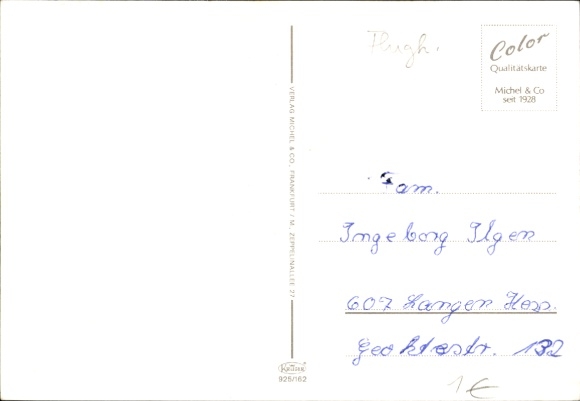 Flugh.
Color
Qualitätskarte
Michel & Co
seit 1928
VERLAG MICHEL & CO., FRANKFURT / M., ZEPPELINALLEE 27
Fam.
Ingeborg Ilgen
607 Langen Hess.
132
Krüger
925/162
1 €